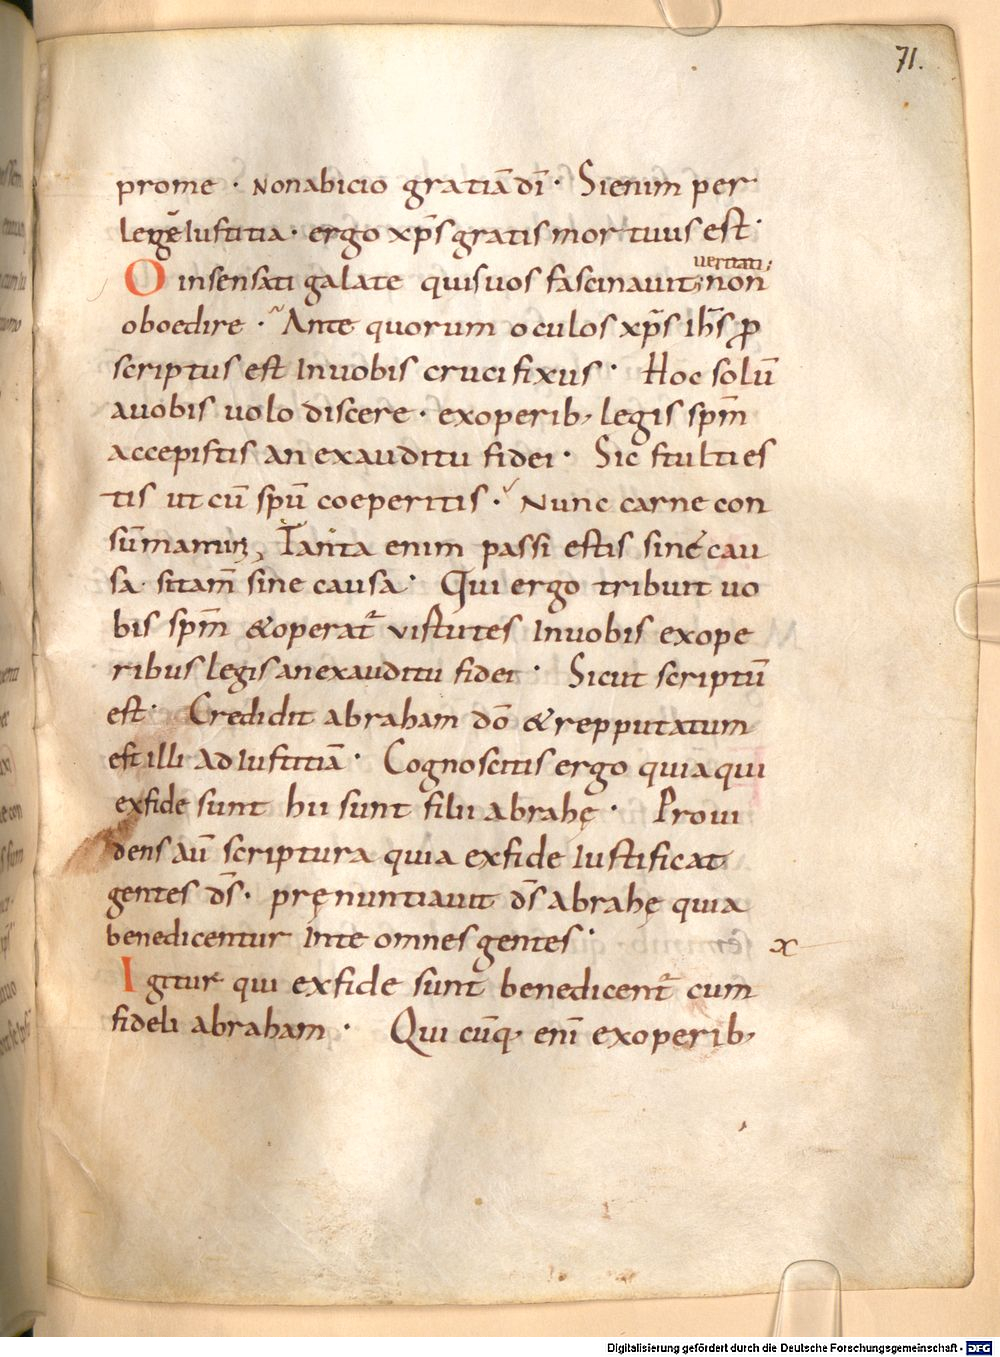 71.
prome · Nonabicio gratiā dī · Sienim per
legē iustitia · ergo xp̄s gratis mortuus est ·
ueritati;
O insensati galate quisuos fascinauit; non
oboedire · Ante quorum oculos xp̄s ih̄s ꝓ
scriptus est Inuobis crucifixus · Hoc solū
auobis uolo discere · exoperib; legis sp̄m
accepistis an exauditu fidei · Sic stulties
tis ut cū sp̄u coeperitis · Nunc carne con
sūmamini; Tanta enim passi estis sine cau
sa · sitam̄ sine causa · Qui ergo tribuit uo
bis sp̄m &operat̄ uirtutes Inuobis exope
ribus legis anexauditu fidei · Sicut scriptū
est · Credidit abraham dō &repputatum
est illi Adiustitiā · Cognoscitis ergo quia qui
exfide sunt hii sunt filii abrahę · Proui
dens aū scriptura quia exfide iustificat
gentes d̄s · pręnuntiauit d̄s abrahę quia
benedicentur Inte omnes gentes · x
Igitur qui exfide sunt benedicent̄ cum
fideli abraham · Qui cūq; eni̅ exoperib;
Digitalisierung gefördert durch die Deutsche Forschungsgemeinschaft - DFG